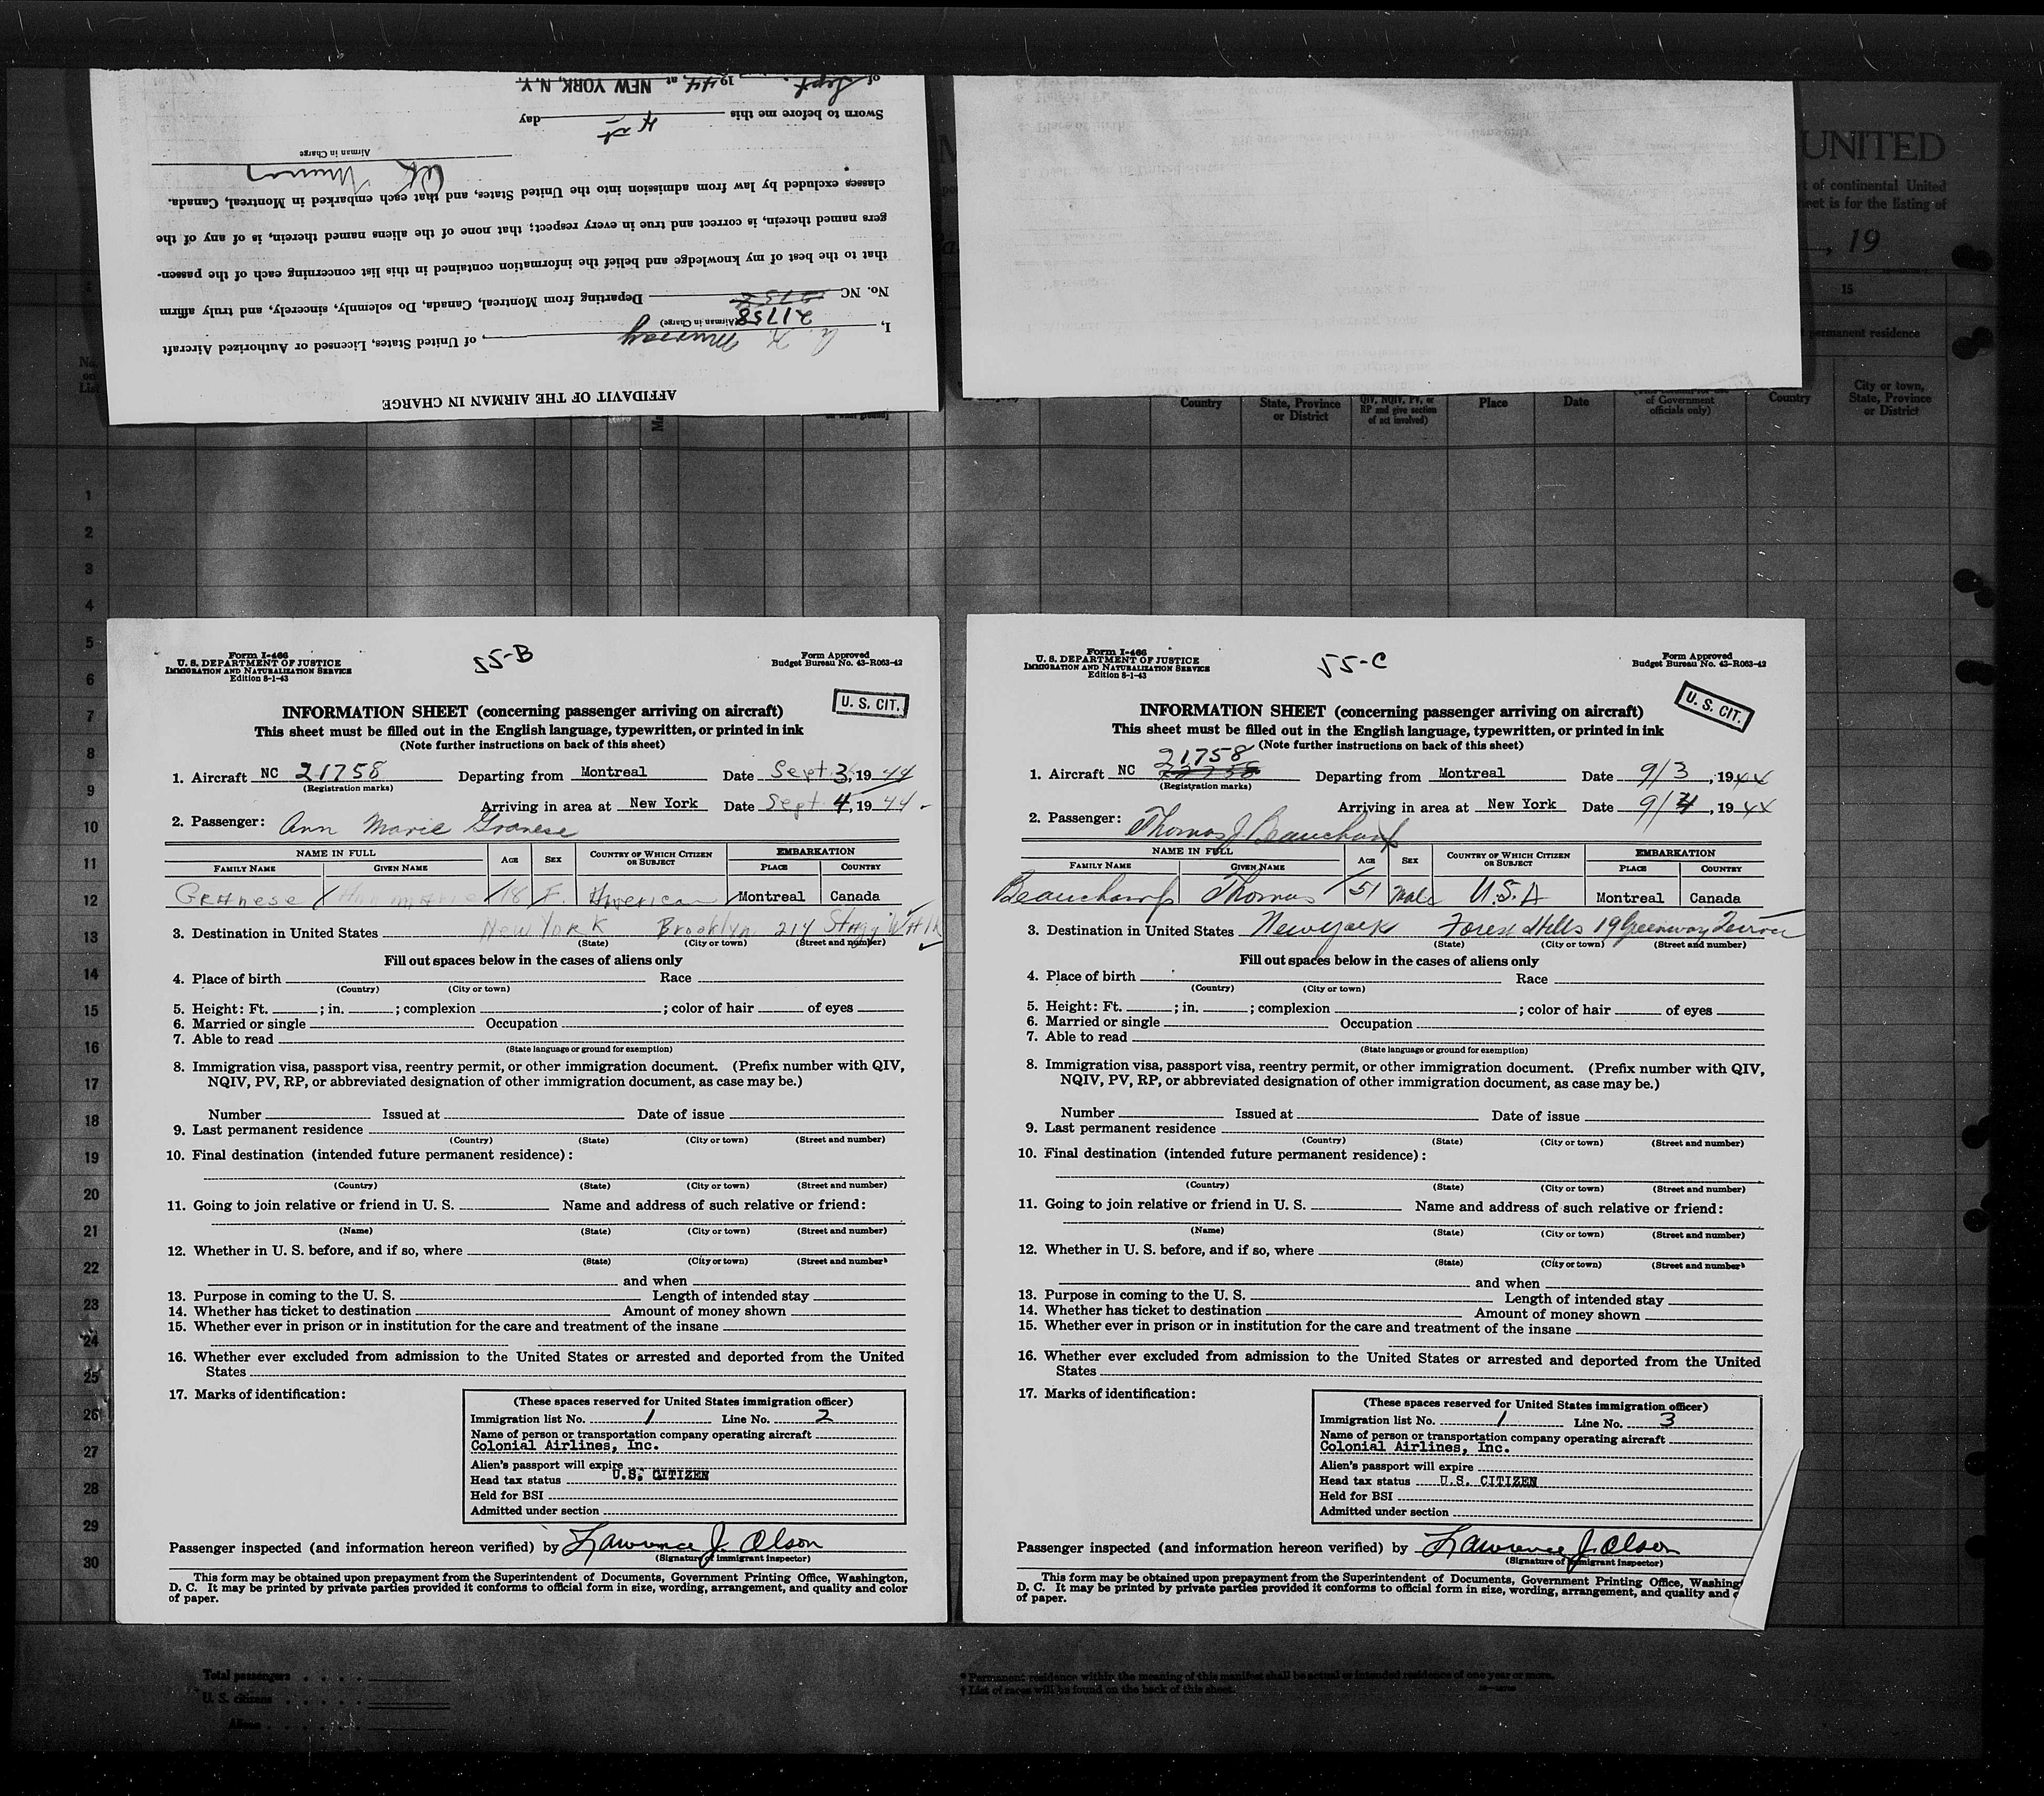 AFFIDAVIT OF THE AIRMAN IN CHARGE
I, A. K. Murray, of United States, Licensed or Authorized Aircraft
(Airman in Charge)
21758
No. NC Departing from Montreal, Canada, Do solemnly, sincerely, and truly affirm
that to the best of my knowledge and belief the information contained in this list concerning each of the passen-
gers named therein, is correct and true in every respect; that none of the aliens named therein, is of any of the
classes excluded by law from admission into the United States, and that each embarked in Montreal, Canada.
AK Murray
Airman in Charge
Sworn to before me this 4 day
of Sept. 1944, at NEW YORK, N. Y.
UNITED
t of continental United
heet is for the listing of
, 19
15
permanent residence
No.
on
List
Country
State, Province
or District
QIV, NQIV, PV, or
RP and give section
of act involved)
Place
Date
of Government
officials only)
Country
City or town,
State, Province
or District
1
2
3
4
5
6
7
8
9
10
11
12
13
14
15
16
17
18
19
20
21
22
23
24
25
26
27
28
29
30
Form I-466
U. S. DEPARTMENT OF JUSTICE
IMMIGRATION AND NATURALIZATION SERVICE
Edition 8-1-43
55-B
Form Approved
Budget Bureau No. 43-R063-42
U. S. CIT.
INFORMATION SHEET (concerning passenger arriving on aircraft)
This sheet must be filled out in the English language, typewritten, or printed in ink
(Note further instructions on back of this sheet)
1. Aircraft NC 21758 Departing from Montreal Date Sept 3, 1944
(Registration marks)
Arriving in area at New York Date Sept 4, 1944
2. Passenger: Ann Marie Granese
NAME IN FULL AGE SEX COUNTRY OF WHICH CITIZEN OR SUBJECT EMBARKATION
FAMILY NAME GIVEN NAME PLACE COUNTRY
Granese Ann Marie 18 F. American Montreal Canada
3. Destination in United States New York Brooklyn 214 Stagg Walk
(State) (City or town) (Street and number)
Fill out spaces below in the cases of aliens only
4. Place of birth Race
(Country) (City or town)
5. Height: Ft. ; in. ; complexion ; color of hair of eyes
6. Married or single Occupation
7. Able to read
(State language or ground for exemption)
8. Immigration visa, passport visa, reentry permit, or other immigration document. (Prefix number with QIV,
NQIV, PV, RP, or abbreviated designation of other immigration document, as case may be.)
Number Issued at Date of issue
9. Last permanent residence
(Country) (State) (City or town) (Street and number)
10. Final destination (intended future permanent residence):
(Country) (State) (City or town) (Street and number)
11. Going to join relative or friend in U. S. Name and address of such relative or friend:
(Name) (State) (City or town) (Street and number)
12. Whether in U. S. before, and if so, where
(State) (City or town) (Street and number)
and when
13. Purpose in coming to the U. S. Length of intended stay
14. Whether has ticket to destination Amount of money shown
15. Whether ever in prison or in institution for the care and treatment of the insane
16. Whether ever excluded from admission to the United States or arrested and deported from the United
States
17. Marks of identification:
(These spaces reserved for United States immigration officer)
Immigration list No. 1 Line No. 2
Name of person or transportation company operating aircraft
Colonial Airlines, Inc.
Alien's passport will expire
Head tax status U.S. CITIZEN
Held for BSI
Admitted under section
Passenger inspected (and information hereon verified) by Lawrence J. Olson
(Signature of immigrant inspector)
This form may be obtained upon prepayment from the Superintendent of Documents, Government Printing Office, Washington,
D. C. It may be printed by private parties provided it conforms to official form in size, wording, arrangement, and quality and color
of paper.
Form I-466
U. S. DEPARTMENT OF JUSTICE
IMMIGRATION AND NATURALIZATION SERVICE
Edition 8-1-43
55-C
Form Approved
Budget Bureau No. 43-R063-42
U. S. CIT.
INFORMATION SHEET (concerning passenger arriving on aircraft)
This sheet must be filled out in the English language, typewritten, or printed in ink
(Note further instructions on back of this sheet)
21758
1. Aircraft NC Departing from Montreal Date 9/3, 1944
(Registration marks)
Arriving in area at New York Date 9/4, 1944
2. Passenger: Thomas J. Beauchamp
NAME IN FULL AGE SEX COUNTRY OF WHICH CITIZEN OR SUBJECT EMBARKATION
FAMILY NAME GIVEN NAME PLACE COUNTRY
Beauchamp Thomas 51 Male U.S.A Montreal Canada
3. Destination in United States New York Forest Hills 19 Greenway Terrace
(State) (City or town) (Street and number)
Fill out spaces below in the cases of aliens only
4. Place of birth Race
(Country) (City or town)
5. Height: Ft. ; in. ; complexion ; color of hair of eyes
6. Married or single Occupation
7. Able to read
(State language or ground for exemption)
8. Immigration visa, passport visa, reentry permit, or other immigration document. (Prefix number with QIV,
NQIV, PV, RP, or abbreviated designation of other immigration document, as case may be.)
Number Issued at Date of issue
9. Last permanent residence
(Country) (State) (City or town) (Street and number)
10. Final destination (intended future permanent residence):
(Country) (State) (City or town) (Street and number)
11. Going to join relative or friend in U. S. Name and address of such relative or friend:
(Name) (State) (City or town) (Street and number)
12. Whether in U. S. before, and if so, where
(State) (City or town) (Street and number)
and when
13. Purpose in coming to the U. S. Length of intended stay
14. Whether has ticket to destination Amount of money shown
15. Whether ever in prison or in institution for the care and treatment of the insane
16. Whether ever excluded from admission to the United States or arrested and deported from the United
States
17. Marks of identification:
(These spaces reserved for United States immigration officer)
Immigration list No. 1 Line No. 3
Name of person or transportation company operating aircraft
Colonial Airlines, Inc.
Alien's passport will expire
Head tax status U.S. CITIZEN
Held for BSI
Admitted under section
Passenger inspected (and information hereon verified) by Lawrence J. Olson
(Signature of immigrant inspector)
This form may be obtained upon prepayment from the Superintendent of Documents, Government Printing Office, Washing
D. C. It may be printed by private parties provided it conforms to official form in size, wording, arrangement, and quality and c
of paper.
Total passengers
U. S. citizens
Aliens
* Permanent residence within the meaning of this manifest shall be actual or intended residence of one year or more.
† List of races will be found on the back of this sheet.